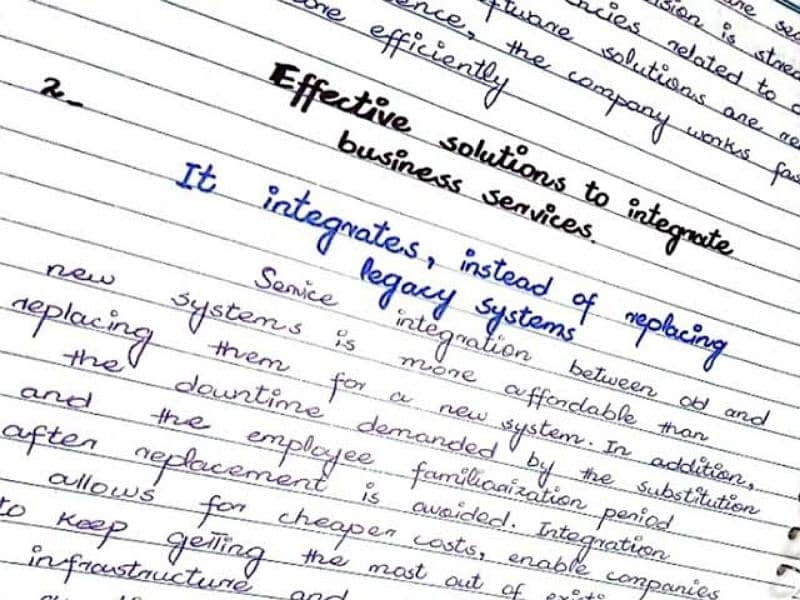 sion is
related to
software solutions are
ence, the company works
more efficiently
2_
Effective solutions to integrate
business services.
It integrates, instead of replacing
legacy systems
Service integration between old and
new systems is more affordable than
replacing them for a new system. In addition,
the downtime demanded by the substitution
and the employee familiarization period
after replacement is avoided. Integration
allows for cheaper costs, enable companies
to keep getting the most out of
infraustructure and